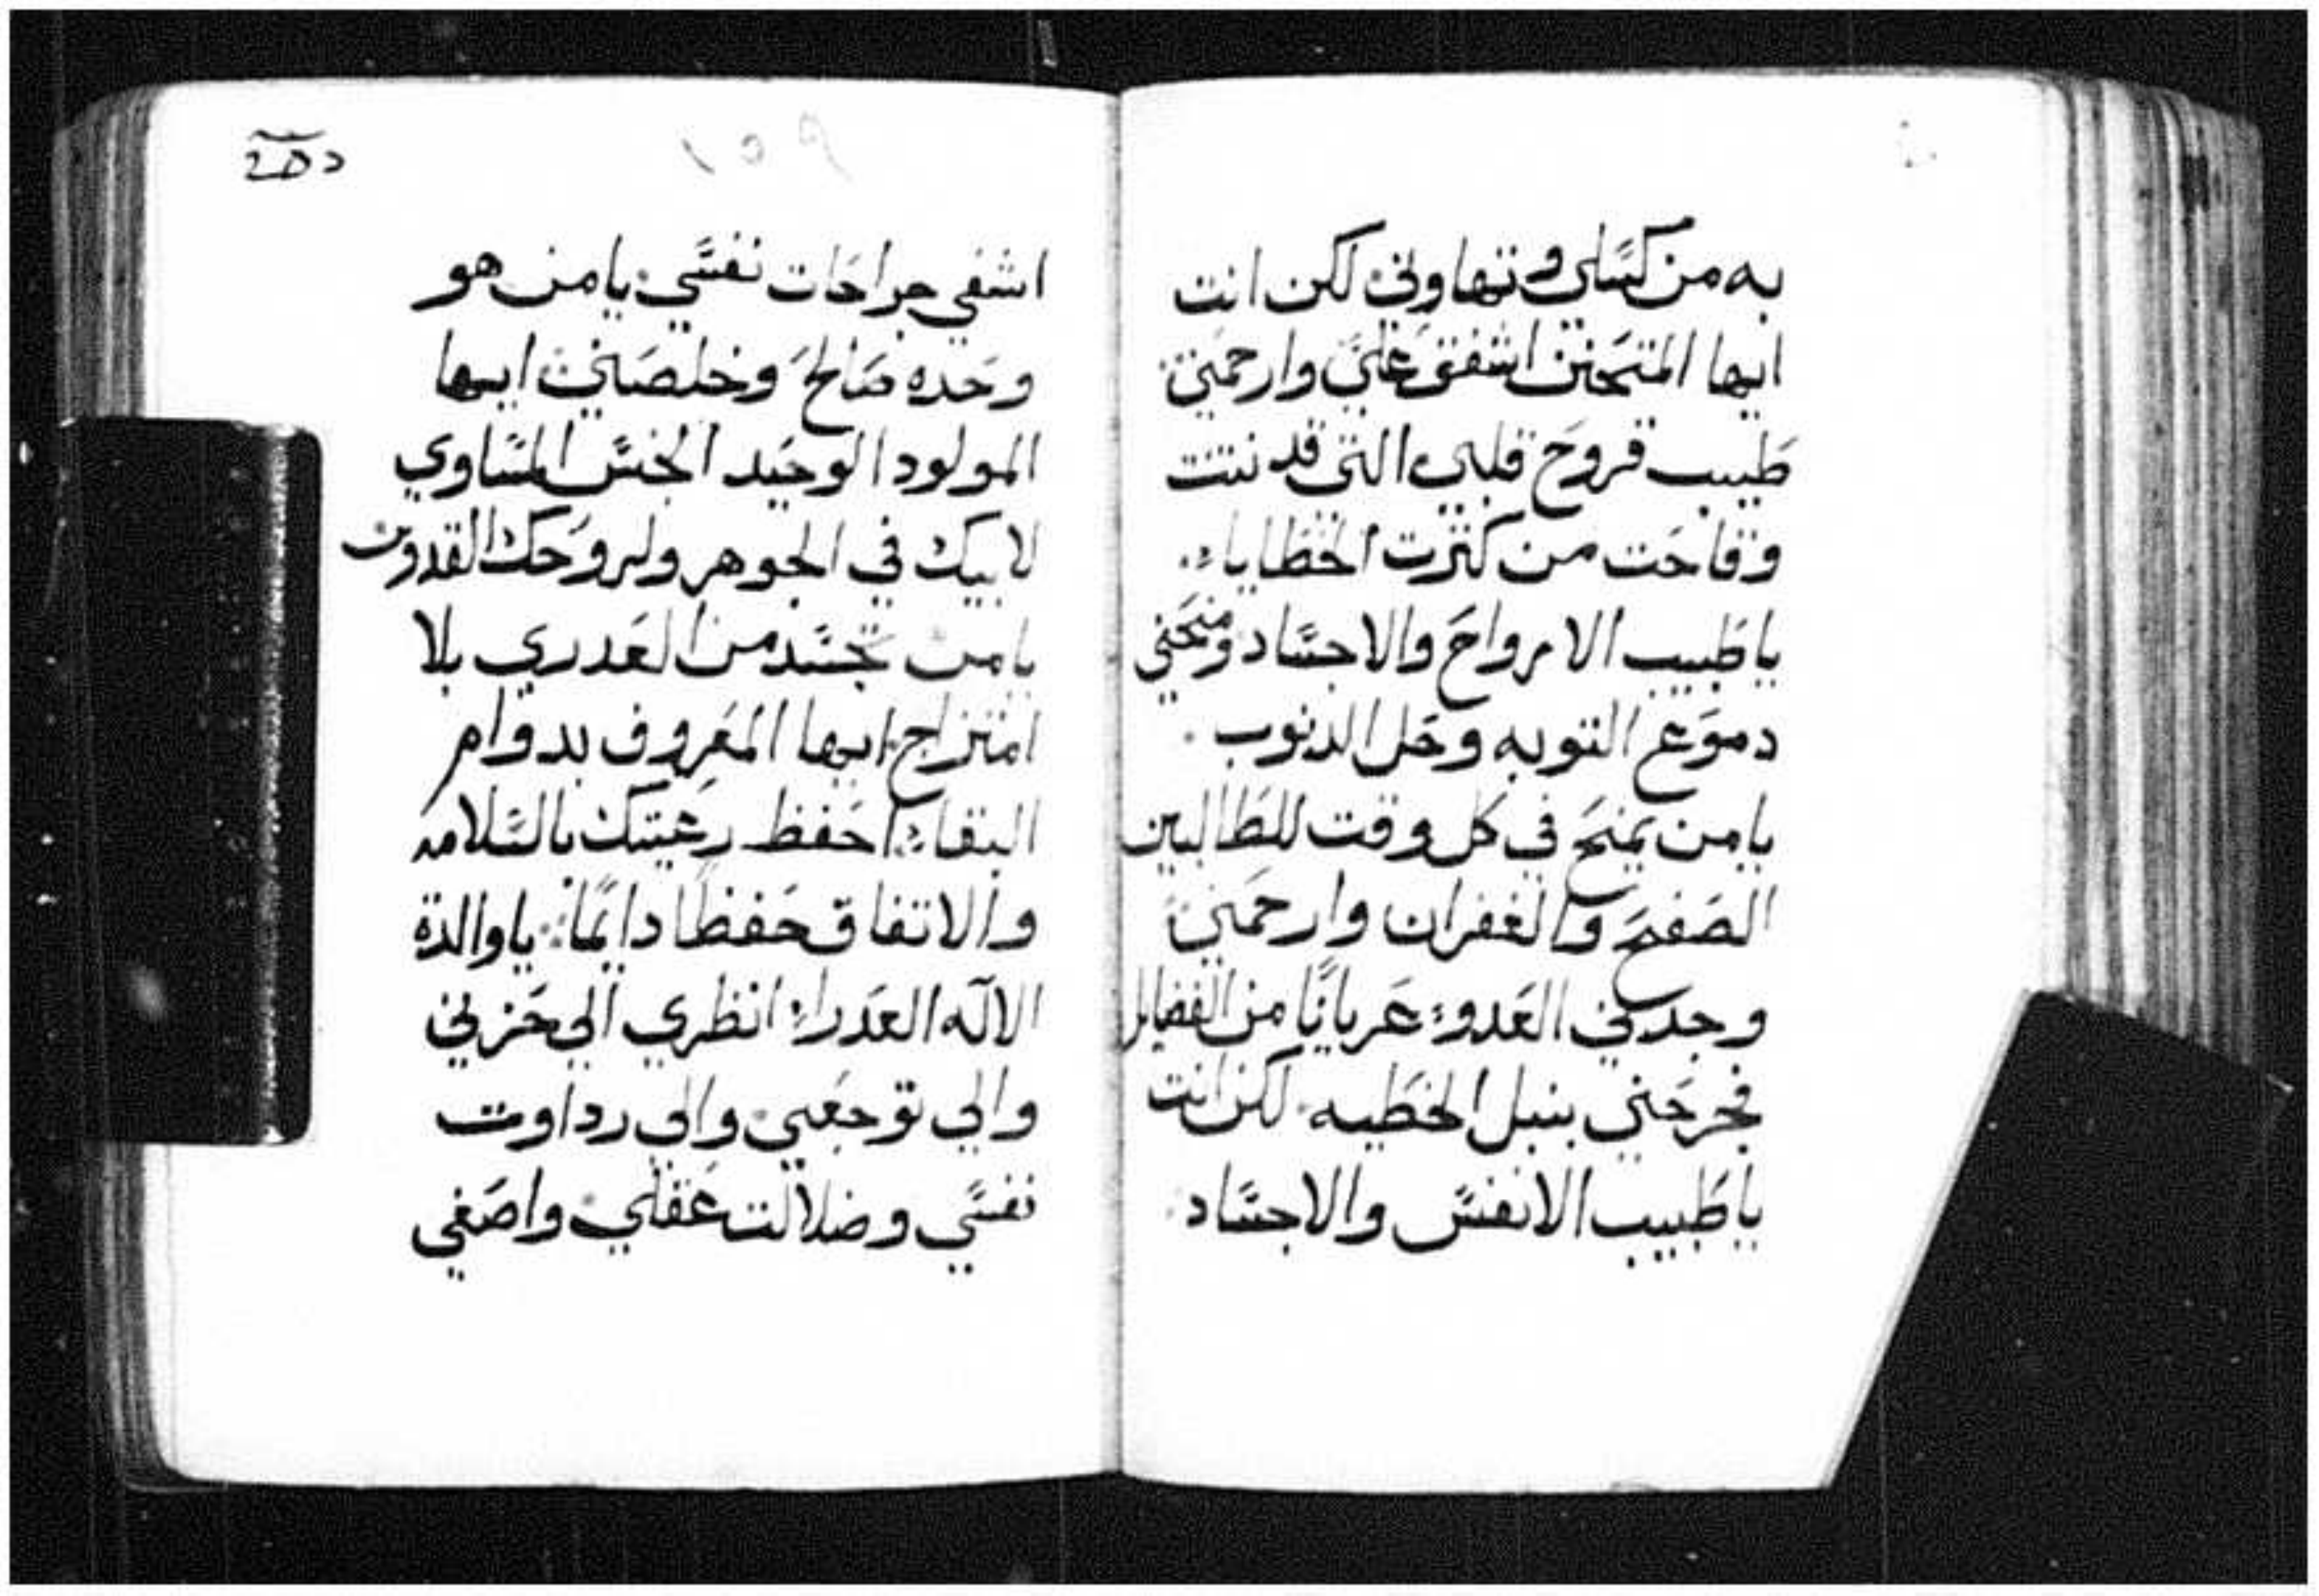 به من كسلي وتهاوني لكن انت
ايها المتحنن اشفق علي وارحمني
طبيب قروح قلبي التي قد نتنت
وقاحت من كثرت الخطايا
يا طبيب الارواح والاجساد ومنحني
دموع التوبه وحل الدنوب
يا من يمنح في كل وقت للطالبين
الصفح والغفران وارحمني
وجدني العدو عريانا من الفضايل
فجرحني بنبل الخطيه لكن انت
يا طبيب الانفس والاجساد
اشفي جراحات نفسي يا من هو
وحده صالح وخلصني ايها
المولود الوحيد الجنس المساوي
لابيك في الجوهر ولروحك القدوس
يا من تجسد من العدري بلا
امتزاج ايها المعروف بدوام
البقاء احفظ رعيتك بالسلامه
والاتفاق حفظا دايما يا والدة
الاله العدراء انظري الي حزني
والي توجعي والي رداوت
نفسي وضلالت عقلي واصغي